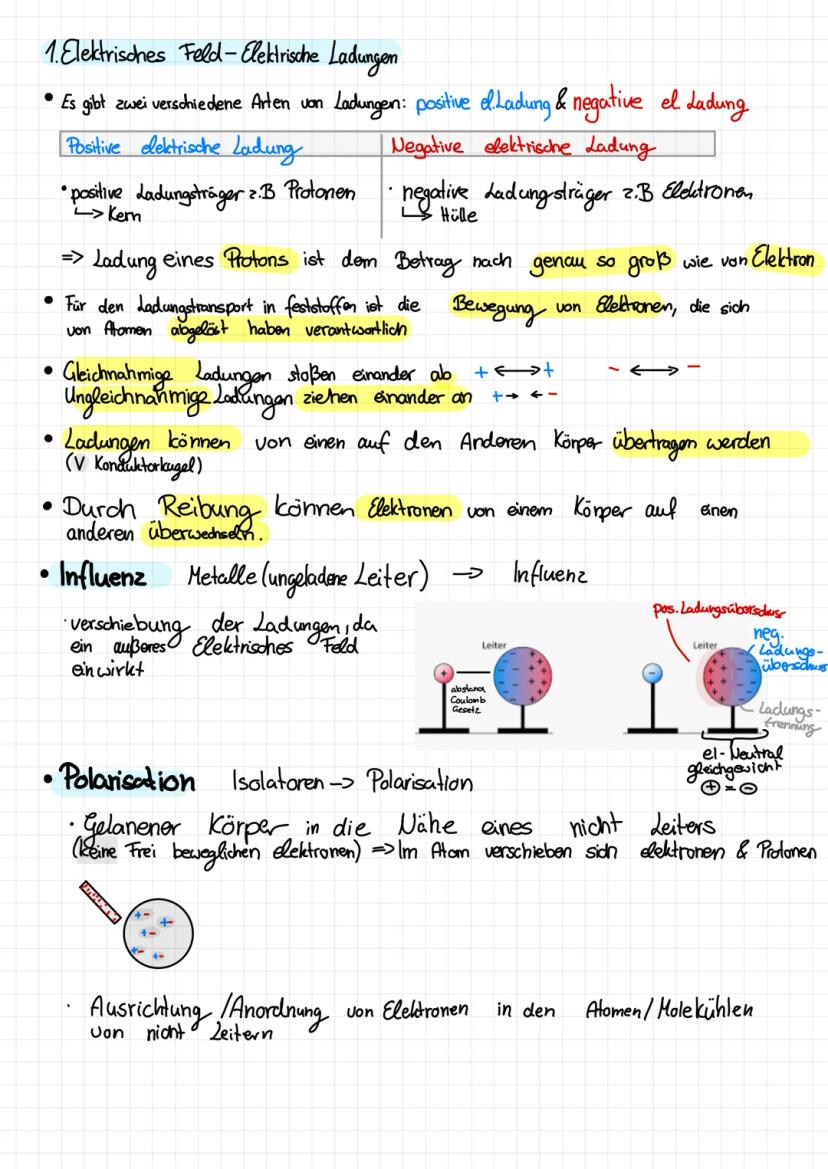 1. Elektrisches Feld - Elektrische Ladungen
• Es gibt zwei verschiedene Arten von Ladungen: positive el. Ladung & negative el. Ladung
Positive elektrische Ladung
Negative elektrische Ladung
• positive Ladungsträger z.B Protonen
↳ Kern
· negative Ladungsträger z.B Elektronen
↳ Hülle
=> Ladung eines Protons ist dem Betrag nach genau so groß wie von Elektron
• Für den Ladungstransport in feststoffen ist die Bewegung von Elektronen, die sich
von Atomen abgelöst haben verantwortlich
• Gleichnahmige Ladungen stoßen einander ab + <-> + - <-> -
Ungleichnahmige Ladungen ziehen einander an + → ← -
• Ladungen können von einen auf den Anderen Körper übertragen werden
(V Konduktorkugel)
• Durch Reibung können Elektronen von einem Körper auf einen
anderen überwechseln.
• Influenz Metalle (ungeladene Leiter) → Influenz
· verschiebung der Ladungen, da
ein äußeres Elektrisches Feld
einwirkt
Leiter
abstand
Coulomb
Gesetz
pos. Ladungsüberschuss
Leiter
neg.
Ladungs-
überschuss
Ladungs-
trennung
el- Neutral
gleichgewicht
⊕ = ⊖
• Polarisation Isolatoren -> Polarisation
· Gelanener Körper in die Nähe eines nicht Leiters
(keine Frei beweglichen elektronen) => Im Atom verschieben sich elektronen & Protonen
· Ausrichtung / Anordnung von Elektronen in den Atomen / Molekühlen
von nicht Leitern